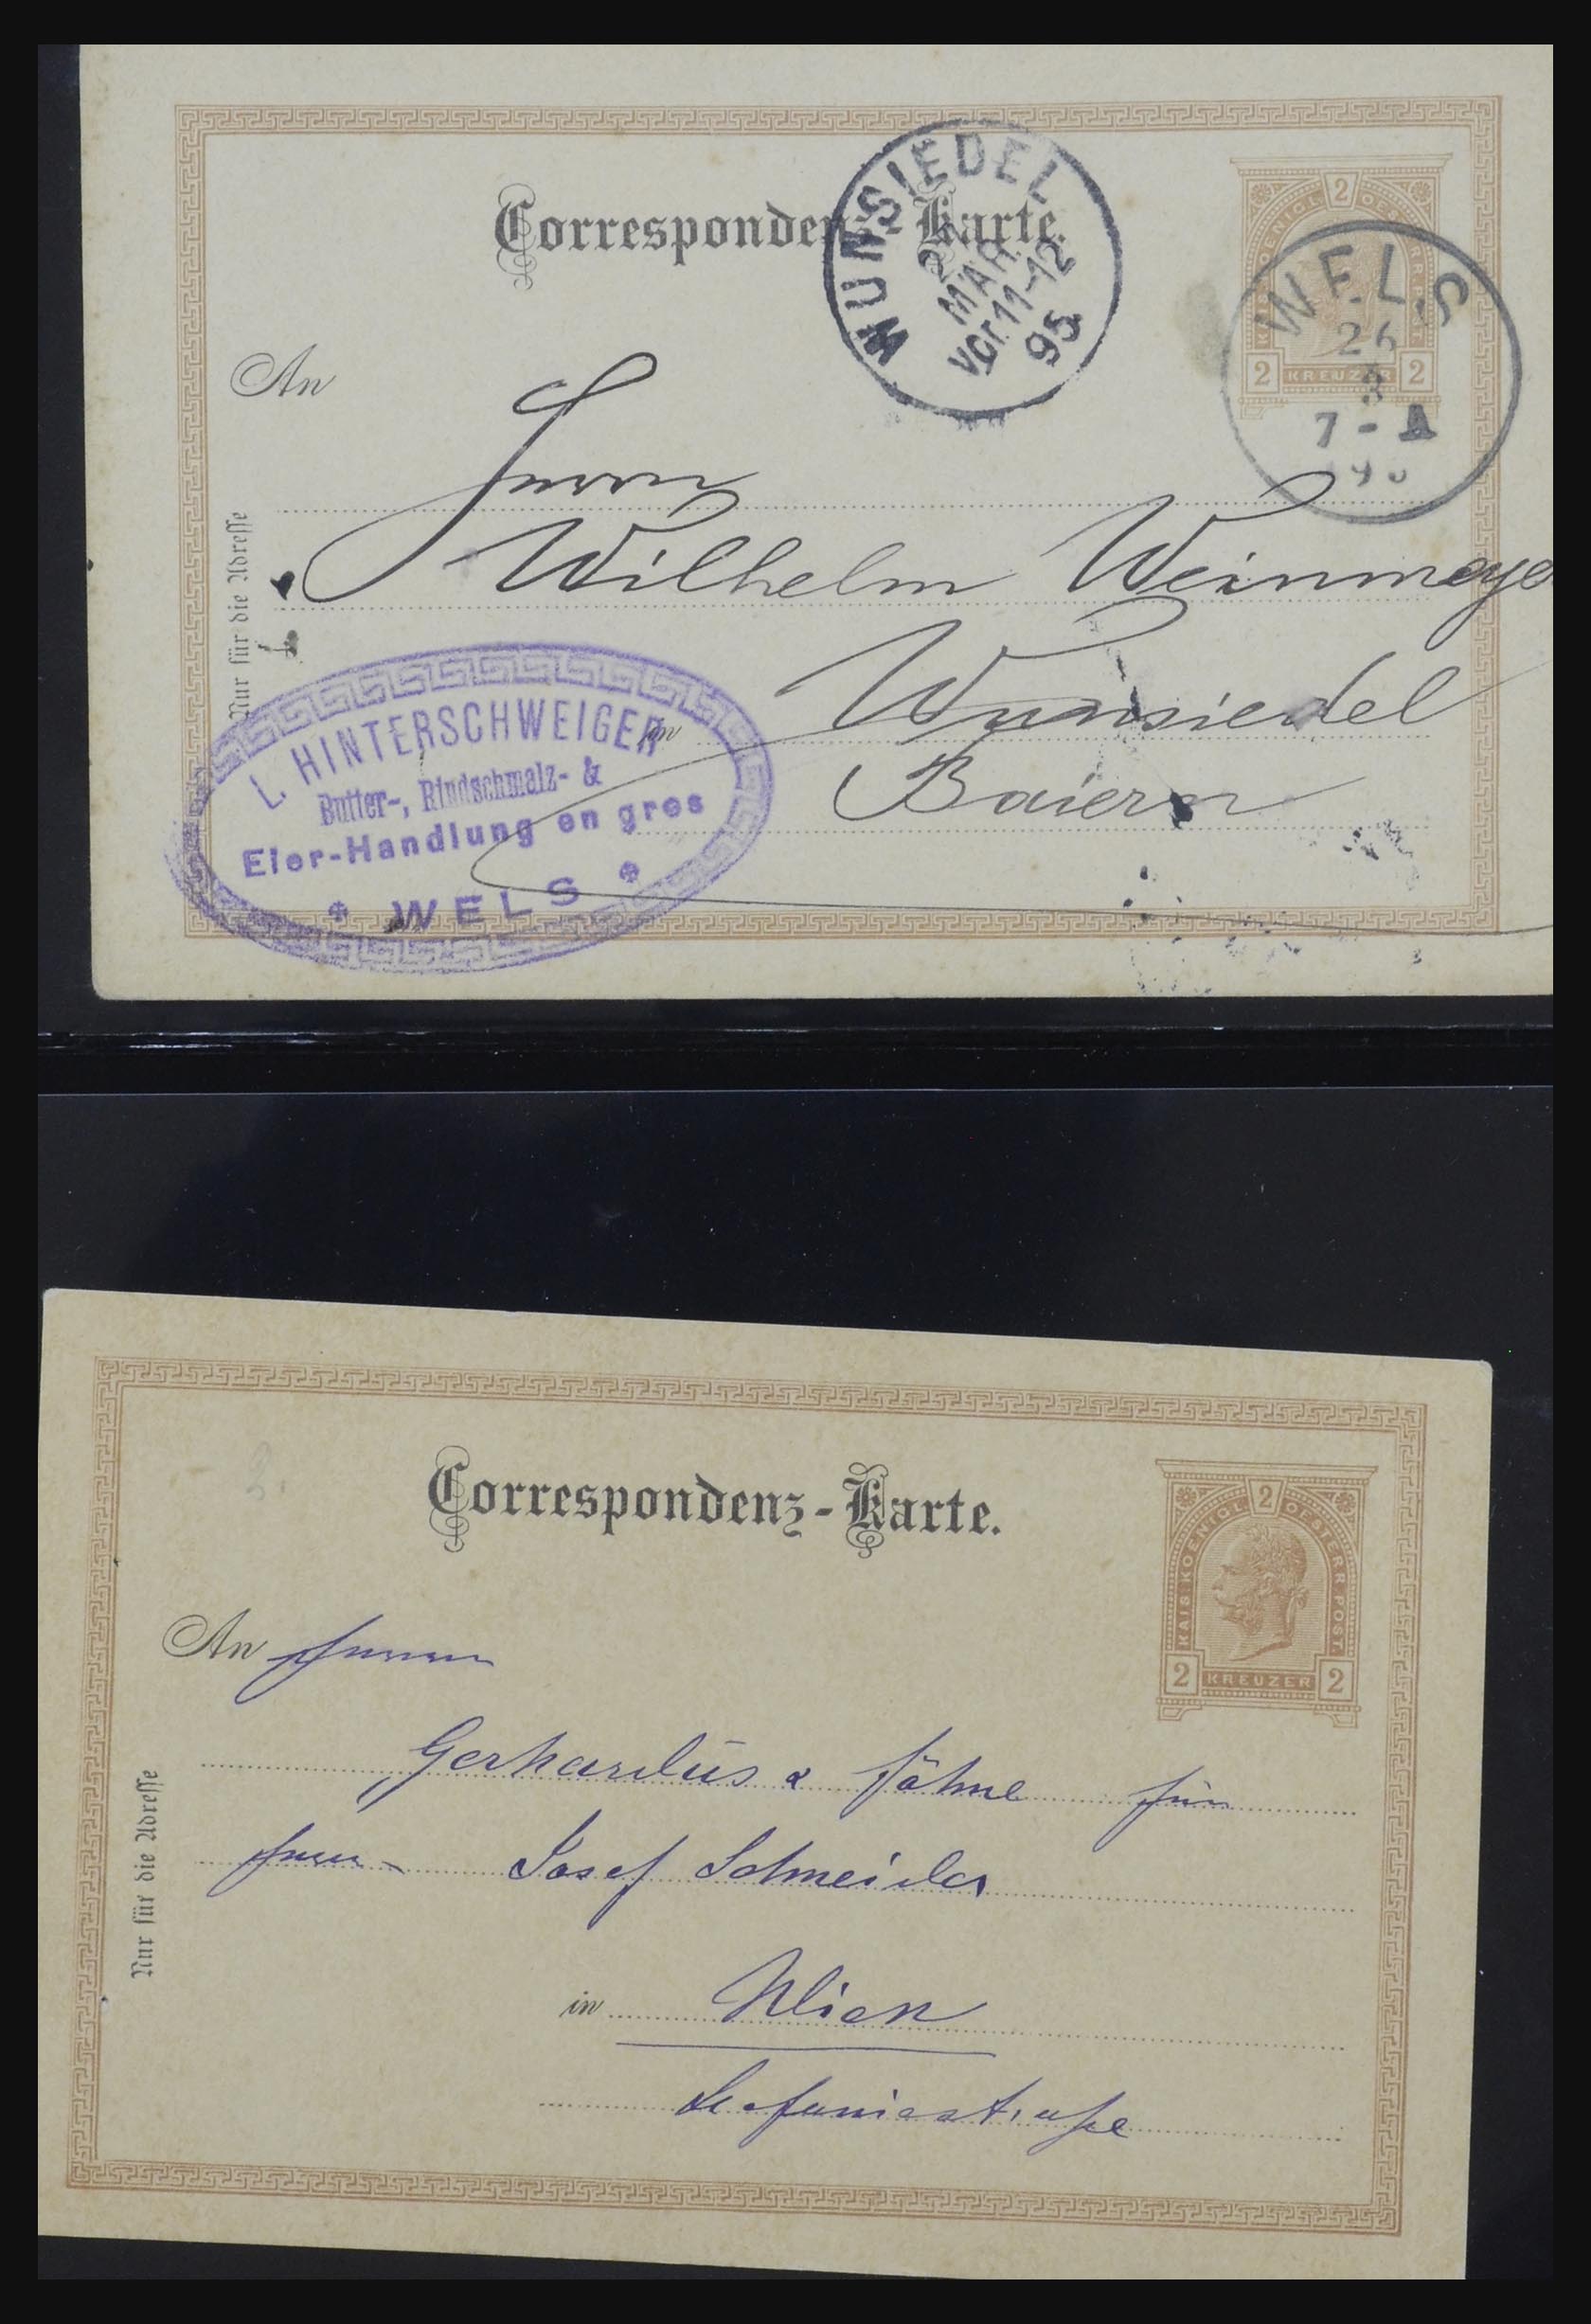 Correspondenz-Karte.
WUNSIEDEL
MÄR.
Vor.11-12
95
2
KREUZER
2 2
WELS
26
3
7 - A
An
Herrn
Wilhelm Weinmaye
in Wunsiedel
Baiern
Nur für die Adresse
L. HINTERSCHWEIGER
Butter-, Rindschmalz- &
Eier-Handlung en gros
* WELS *
Correspondenz-Karte.
2
KAIS. KOENIGL. OESTERR. POST.
2 KREUZER 2
An Herren
Gerhardus & Söhne für
Herrn Josef Schneider
in Wien
Stefaniestraße
Nur für die Adresse